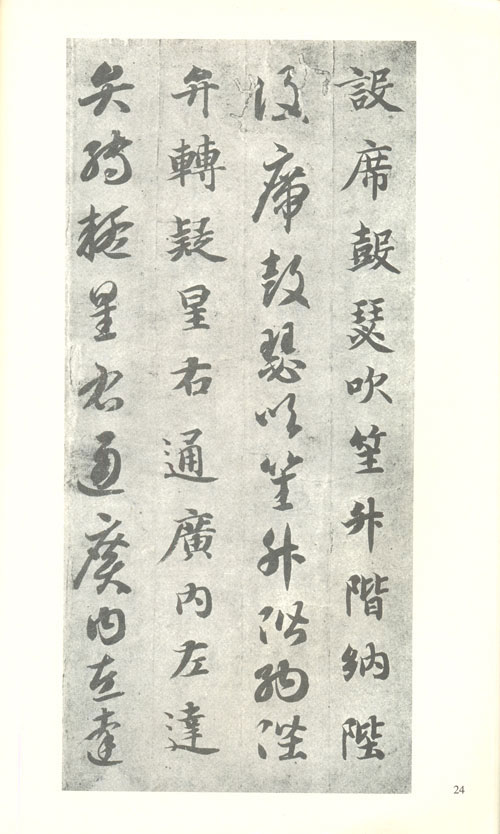 設席鼓瑟吹笙升階納陛
設席鼓瑟吹笙升階納陛
弁轉疑星右通廣內左達
弁轉疑星右通廣內左達
24